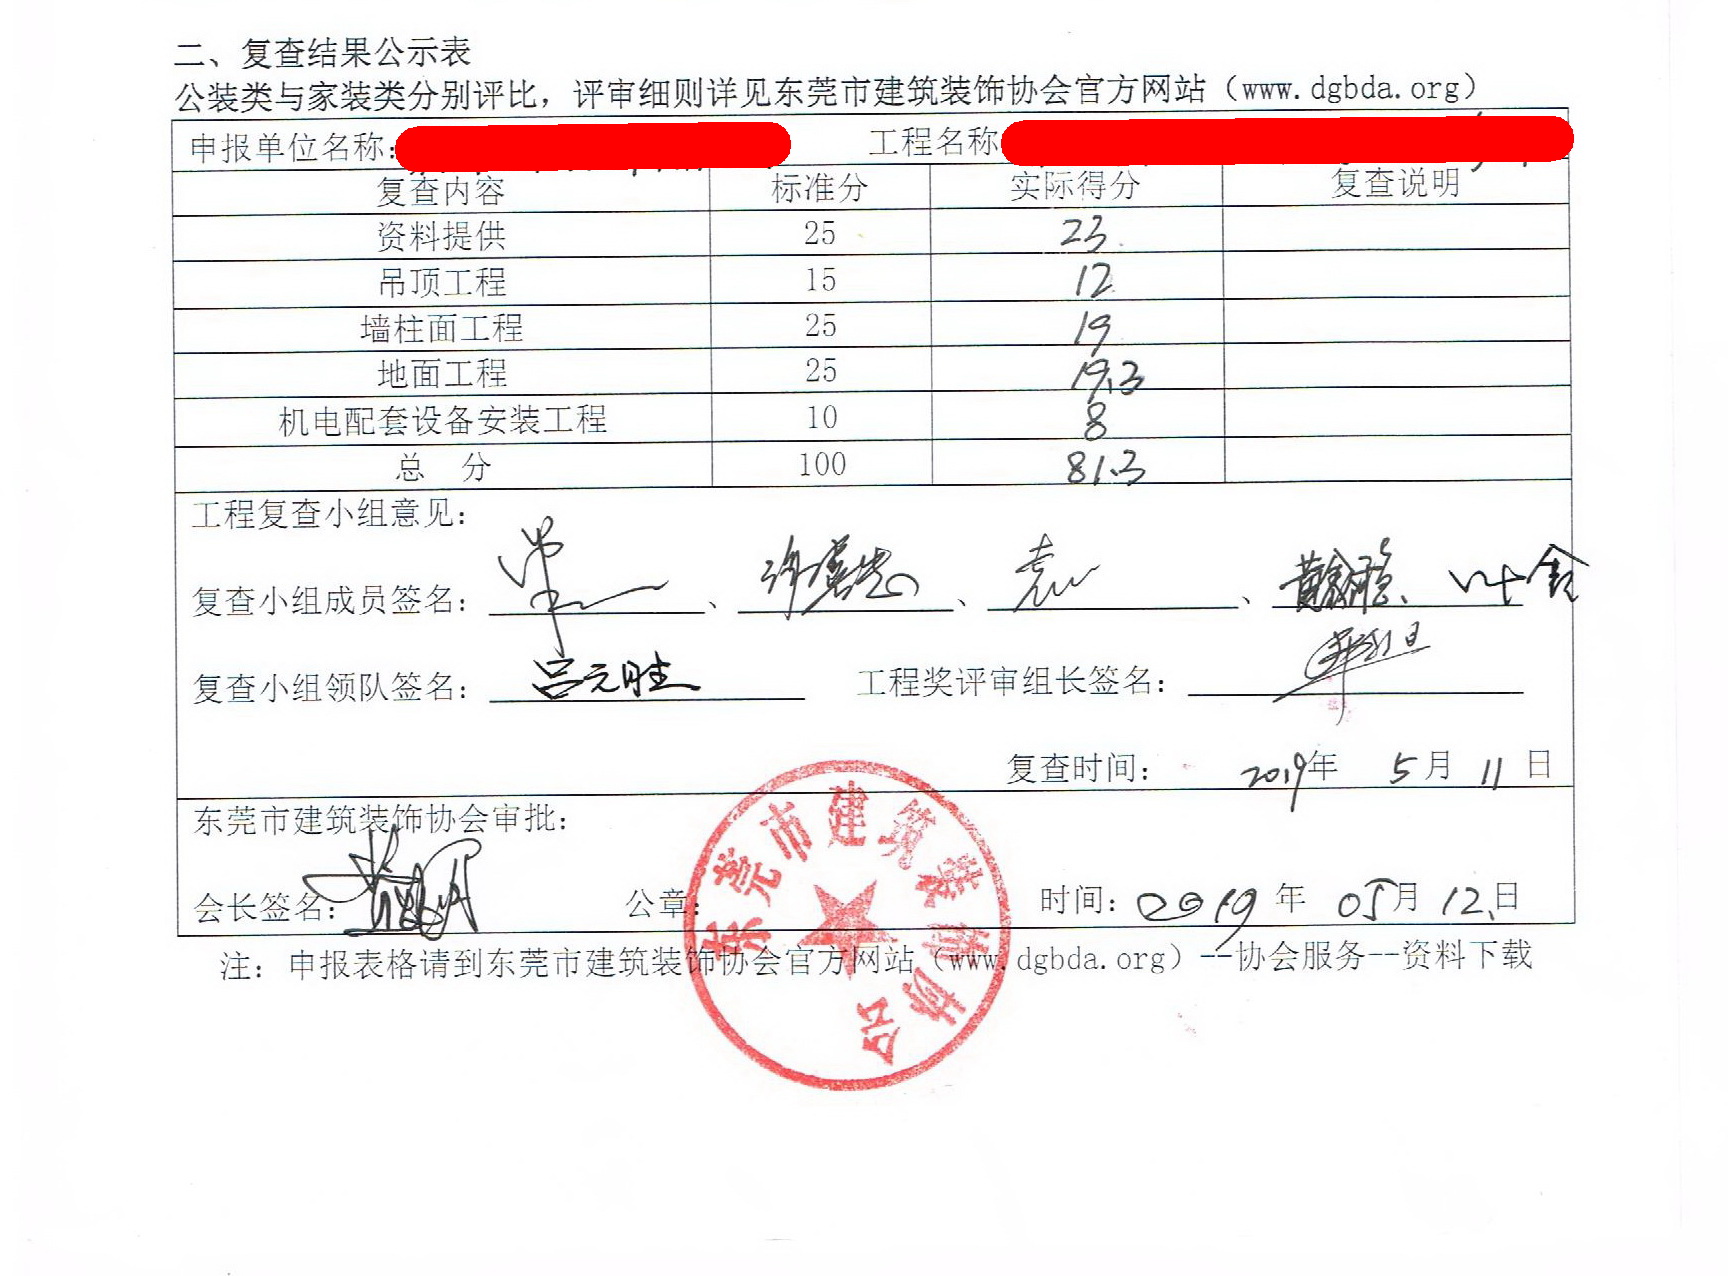 二、复查结果公示表
公装类与家装类分别评比，评审细则详见东莞市建筑装饰协会官方网站（www.dgbda.org）
申报单位名称： 工程名称
复查内容 标准分 实际得分 复查说明
资料提供 25 23
吊顶工程 15 12
墙柱面工程 25 19
地面工程 25 19.3
机电配套设备安装工程 10 8
总 分 100 81.3
工程复查小组意见：
复查小组成员签名： 、 、 、 叶
复查小组领队签名：吕元胜 工程奖评审组长签名：
复查时间： 2019年 5月 11日
东莞市建筑装饰协会审批：
会长签名： 公章： 时间：2019年 05月 12日
东莞市建筑装饰协会
注：申报表格请到东莞市建筑装饰协会官方网站（www.dgbda.org）--协会服务--资料下载